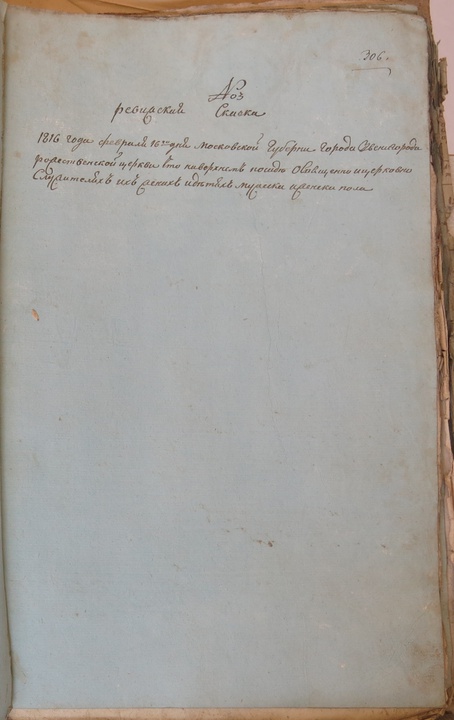 306.
№3
ревизския Сказка
1816 года февраля 16го дня Московской Губерни города Звенигорода
рожественской церкви что на верхнемъ посаде Освященно ицерковно
Служителяхъ ихъ женахъ идетяхъ мужеска иженска пола